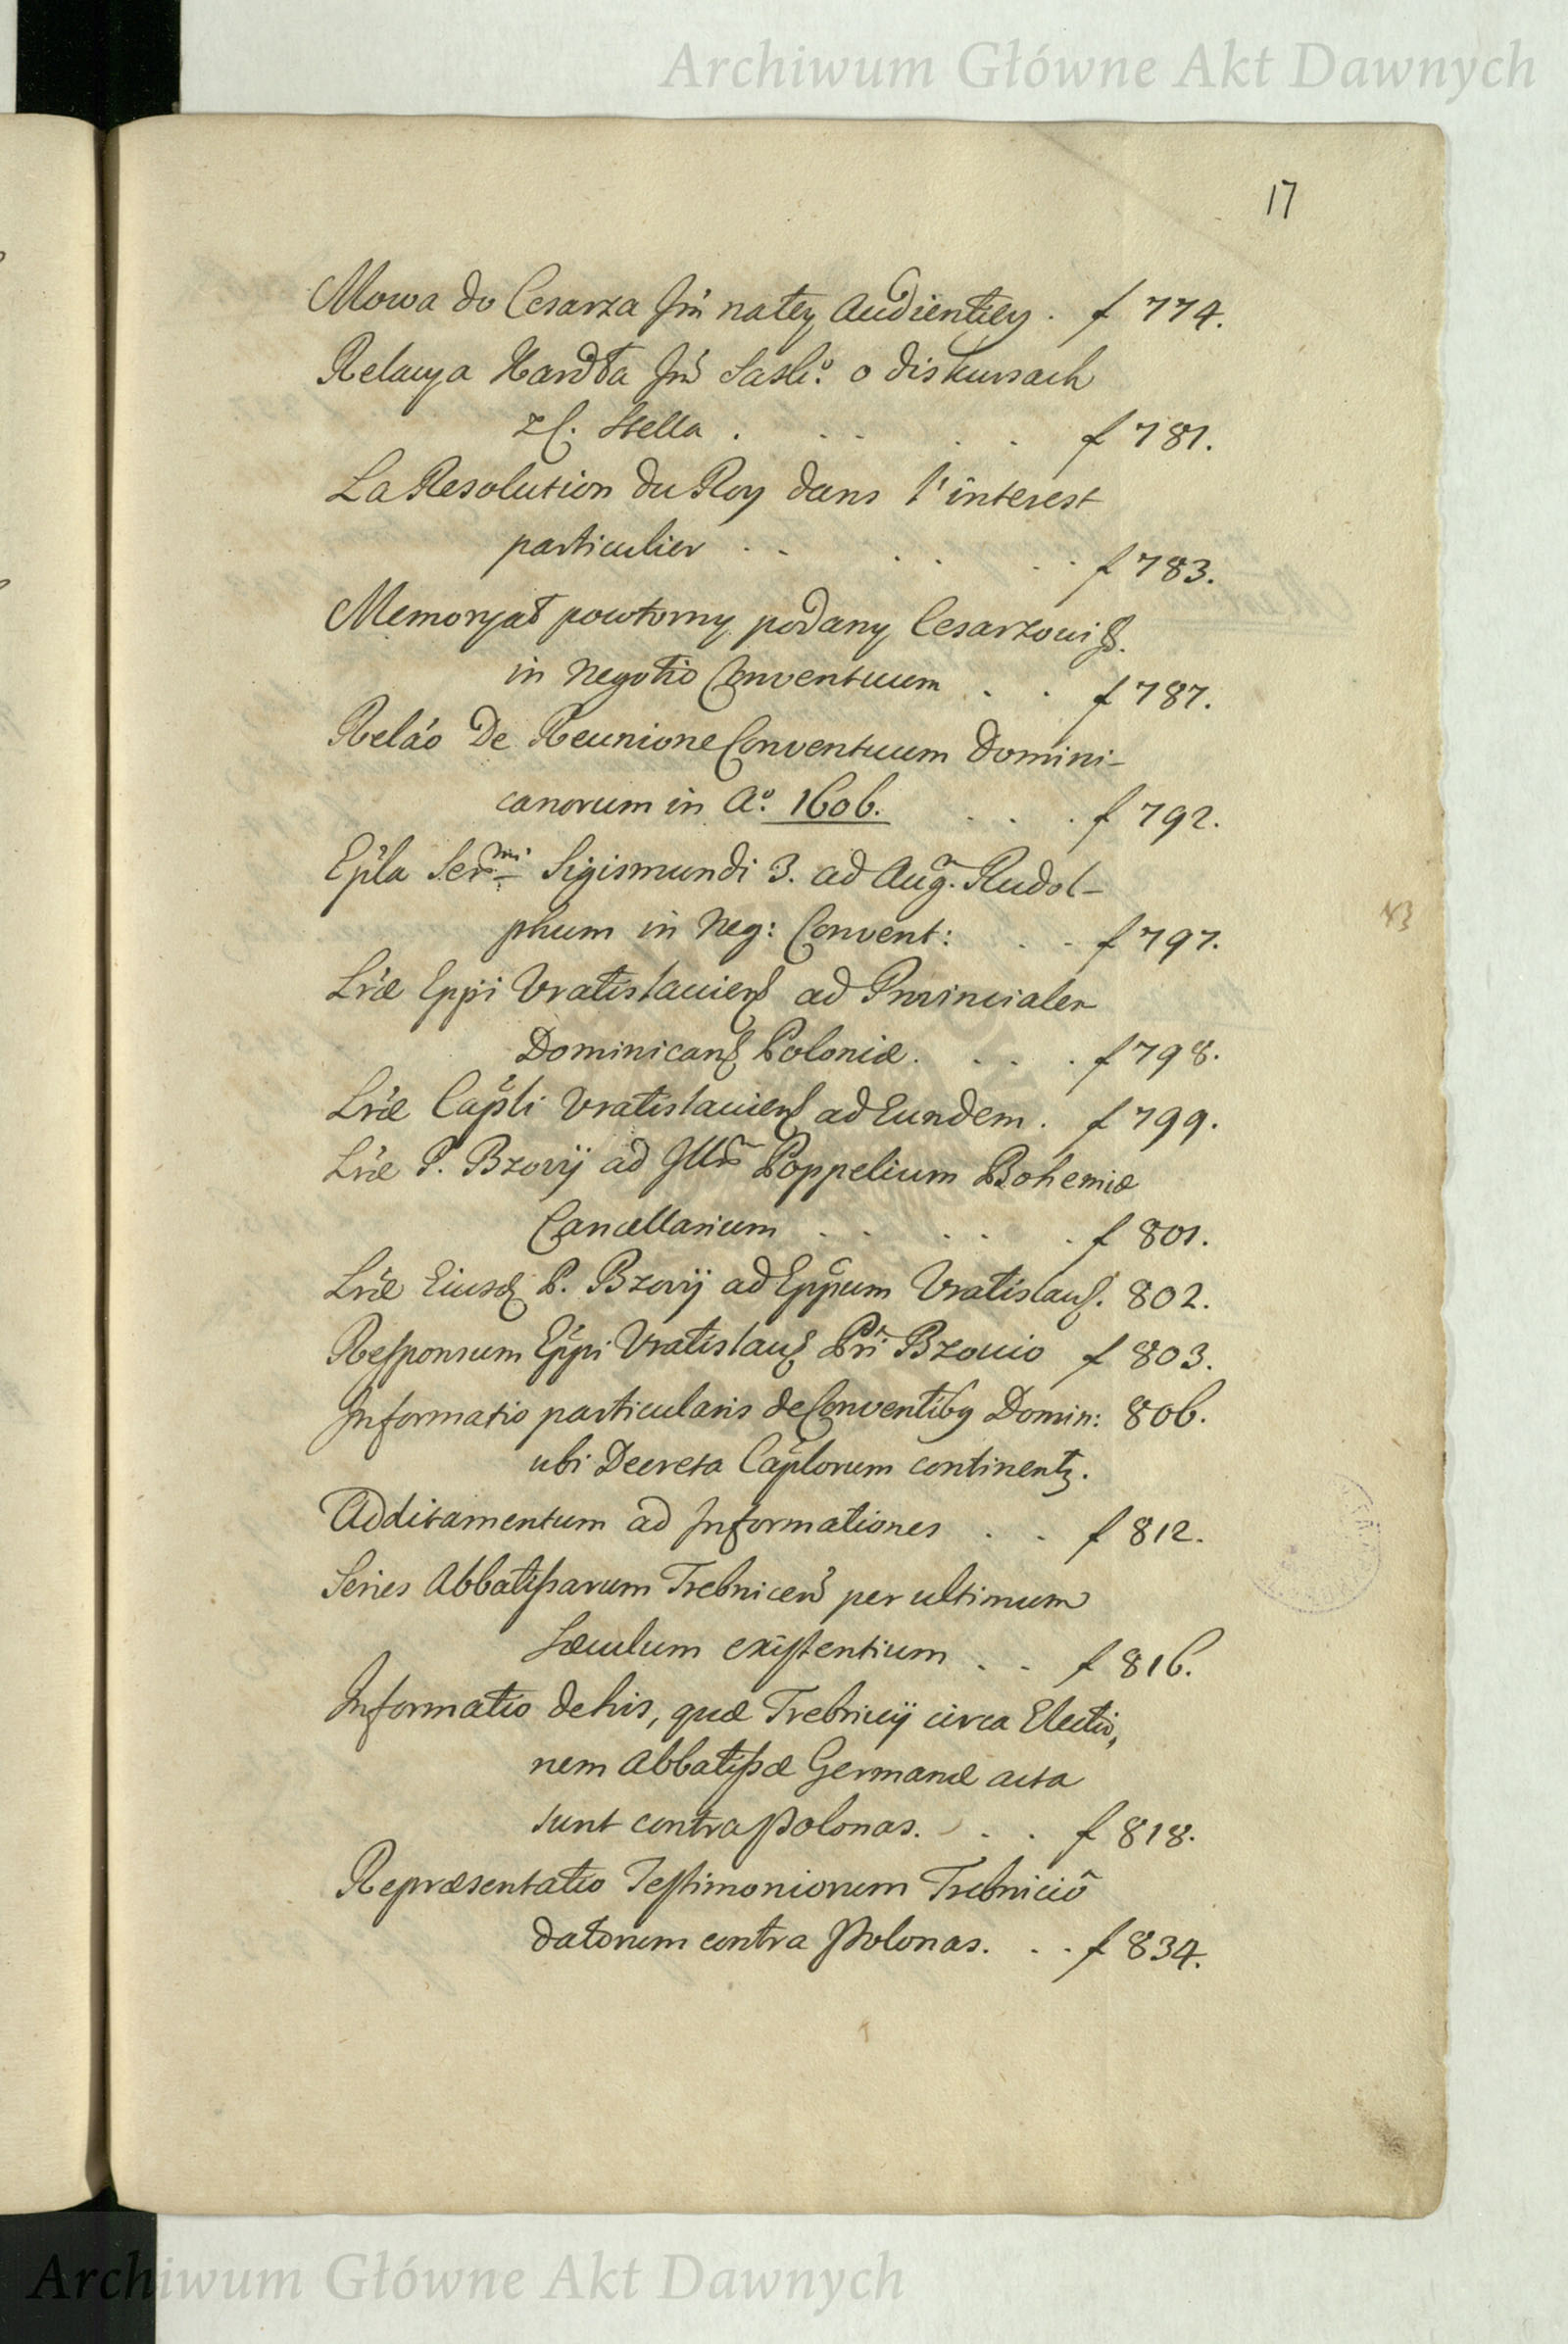 Archiwum Główne Akt Dawnych
17
Mowa do Cesarza Jm̃ natey Audientiey . f 774.
Relacya Kardła Jm̃ Sasko: o diskursach
z C. Stella . . . . . f 781.
La Resolution du Roy dans l'interest
particulier . . . . . . f 783.
Memoryał powtorny podany Cesarzowi
in Negotio Conventuum . . f 787.
Relao De Reunione Conventuum Domini-
canorum in Aº. 1606. . . . f 792.
Epla Sermi Sigismundi 3. ad Aug. Rudol-
phum in Neg: Convent: . . f 797.
Lræ Eppi Vratislaviens ad Provincialem
Dominicans Poloniæ. . . . f 798.
Lræ Capli Vratislaviens ad Eundem. f 799.
Lræ P. Bzovij ad Illm Poppelium Bohemiæ
Cancellarium . . . . . f 801.
Lræ Eiusd P. Bzovij ad Eppum Vratislaus. 802.
Responsum Eppi Vratislaus Pri Bzovio f 803.
Informatio particularis de Conventibg Domin: 806.
ubi Decreta Caplorum continentz.
Additamentum ad Informationes . . f 812.
Series Abbatissarum Trebnicens per ultimum
Sæculum existentium . . f 816.
Informatio de his, quæ Trebnicij circa Electio,
nem Abbatissæ Germanæ acta
sunt contra Polonas. . . f 818.
Repræsentatio Testimoniorum Trebnicio
datorum contra Polonas. . . f 834.
Archiwum Główne Akt Dawnych